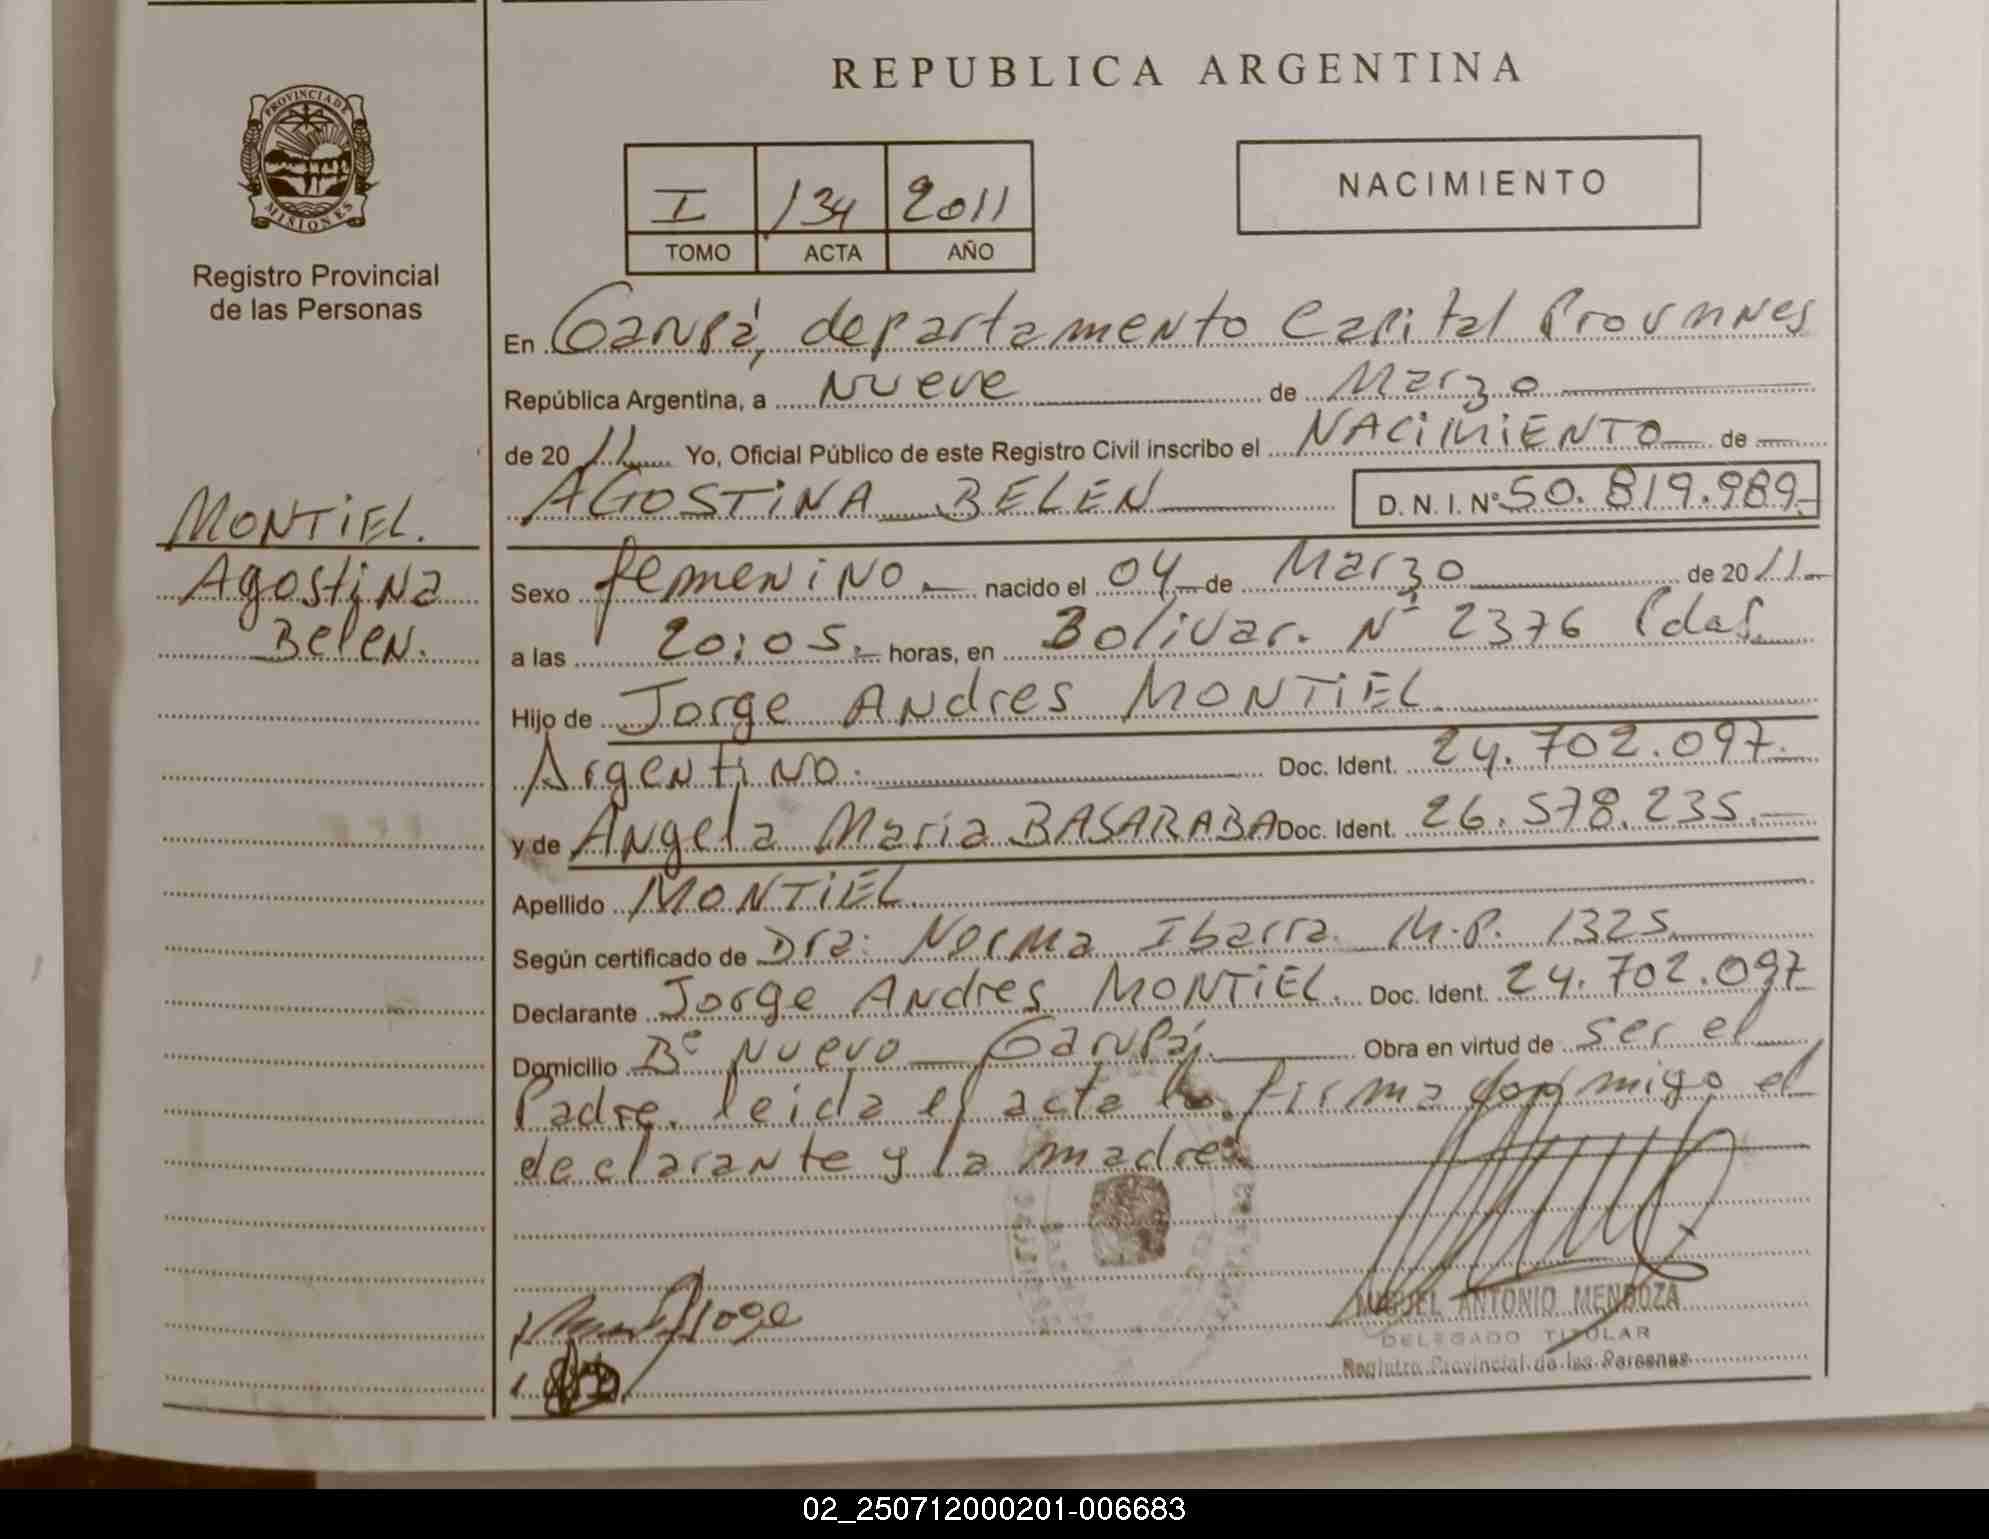 REPUBLICA ARGENTINA
PROVINCIA DE
MISIONES
Registro Provincial
de las Personas
I 134 2011
TOMO ACTA AÑO
NACIMIENTO
En Garupá, departamento Capital
República Argentina, a Nueve de Marzo
de 2011 Yo, Oficial Público de este Registro Civil inscribo el NACIMIENTO de
AGOSTINA BELEN D.N.I.Nº 50.819.989.-
MONTIEL.
Agostina
Belen.
Sexo femenino.- nacido el 04 de Marzo de 2011.-
a las 20:05.- horas, en Bolivar. Nº 2376 Pdas.
Hijo de Jorge Andres MONTIEL
Argentino. Doc. Ident. 24.702.097.-
y de Angela Maria BASARABA Doc. Ident. 26.578.235.-
Apellido MONTIEL.
Según certificado de Dra: Norma Ibarra. M.P. 1325
Declarante Jorge Andres MONTIEL. Doc. Ident. 24.702.097
Domicilio Bº Nuevo Garupá. Obra en virtud de ser el
Padre. leida el acta la firma conmigo el
declarante y la madre.
MIGUEL ANTONIO MENDOZA
DELEGADO TITULAR
Registro Provincial de las Personas
02_250712000201-006683